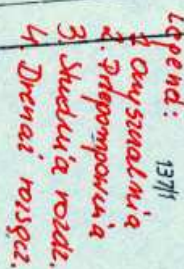 Legend:
137/1
1. Oczyszczalnia
2. Przepompownia
3. Studnia rozdz.
4. Drenaż rozsącz.